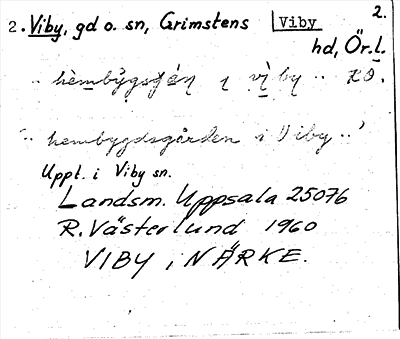 2.
2. Viby, gd o. sn, Grimstens Viby
hd, Ör.l.
".. hembygdsgården i Viby .."
Uppt. i Viby sn.
Landsm. Uppsala 25076
R. Västerlund 1960
VIBY i NÄRKE.